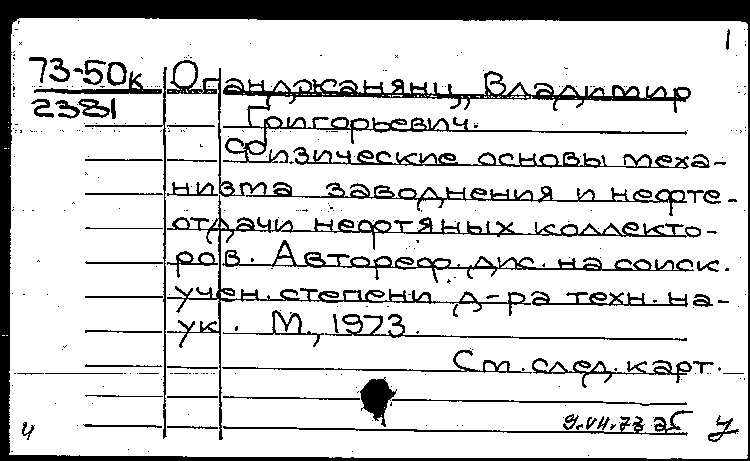 1
73-50к Оганджанянц, Владимир
2381
Григорьевич.
Физические основы меха-
низма заводнения и нефте-
отдачи нефтяных коллекто-
ров. Автореф. дис. на соиск.
учен. степени д-ра техн. на-
ук. М., 1973.
См. след. карт.
9.VII.73